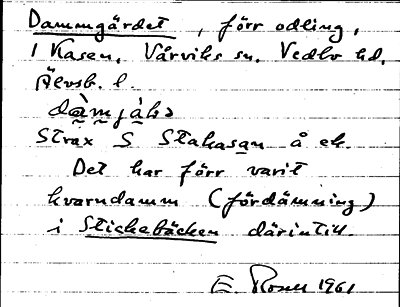 Dammgärdet, förr odling,
1 Kasen, Vårviks sn, Vedbo hd,
Älvsb. l.
Strax S Stakasan å ek.
Det har förr varit
kvarndamm (fördämning)
i Stickebäcken därintill.
E. Rosell 1961